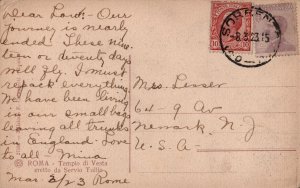 Dear Lord:- Our
journey is nearly
ended. These nine-
teen or twenty days
will fly. I must
repack everything
We have been living
in our small bags
leaving all trunks
in England. Love
to all Mina
ROMA - Tempio di Vesta
eretto da Servio Tullio
Mar 3/23 Rome
SORRENTO
-8.3.23.15
Mrs. Lesser
64-9 Av
Newark N. J
U. S. A